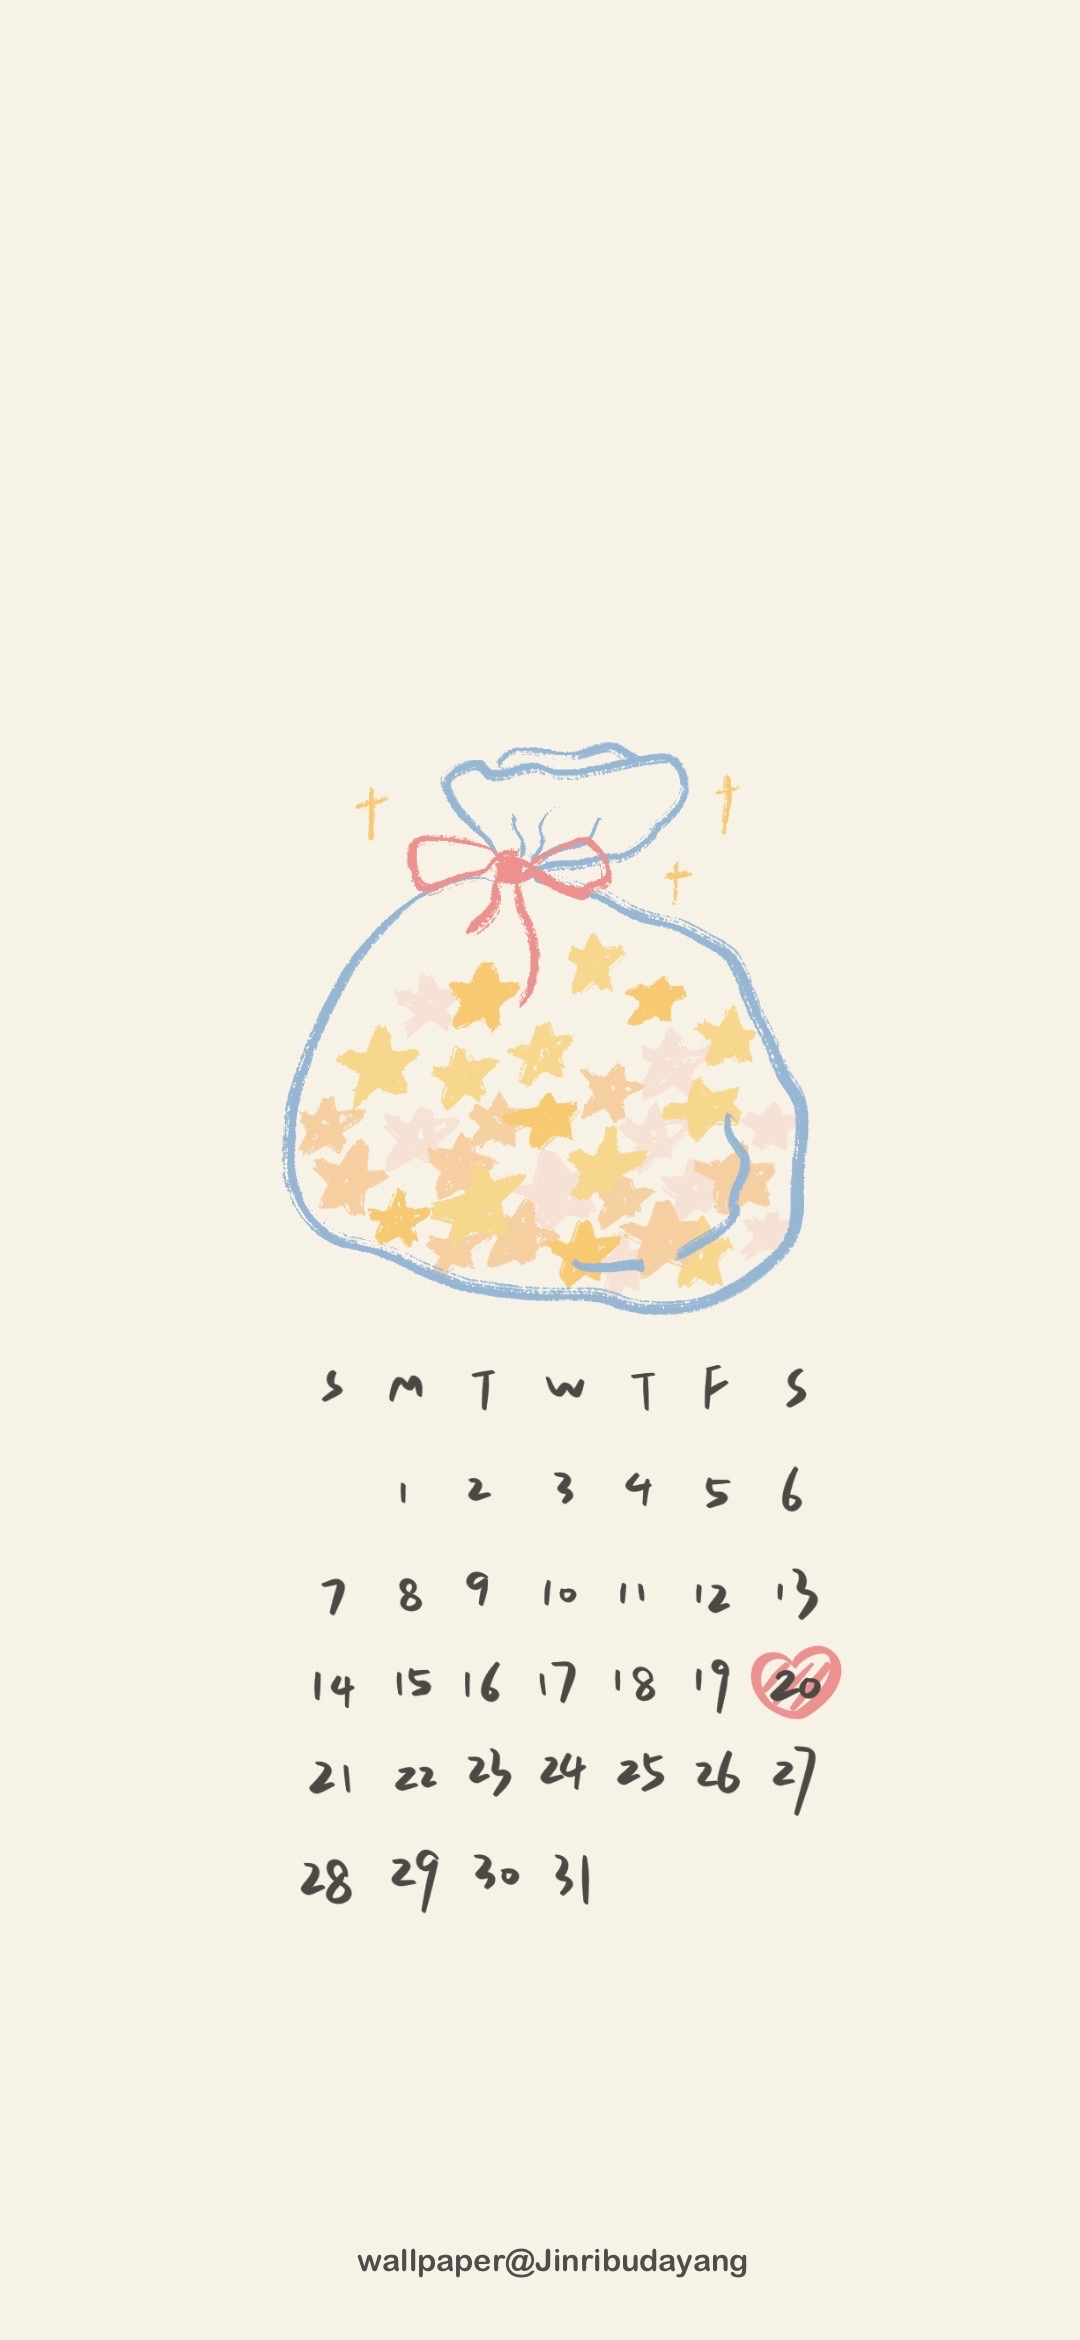 S M T W T F S
1 2 3 4 5 6
7 8 9 10 11 12 13
14 15 16 17 18 19 20
21 22 23 24 25 26 27
28 29 30 31
wallpaper@Jinribudayang